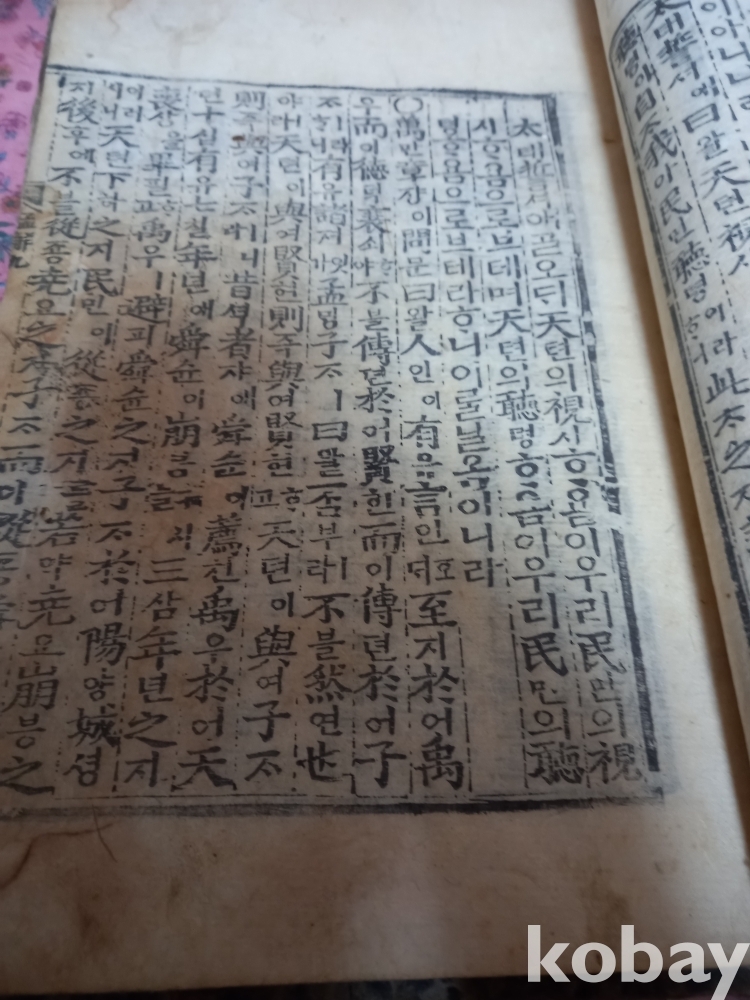 太태誓셔에曰왈天텬視시
聽텽이自ᄌᆞ我아民민聽텽이라ᄒᆞ니此ᄎᆞ之지
太태誓셔애ᄀᆞᆯ오ᄃᆡ天텬의視시ᄒᆞ욤이우리民민의視
시ᄒᆞ욤으로브테며天텬의聽텽ᄒᆞ욤이우리民민의聽
텽ᄒᆞ욤으로브테라ᄒᆞ니이ᄅᆞᆯ닐옴이니라
○萬만章쟝이問문曰왈人인이有유言언호ᄃᆡ至지於어禹
우而이德덕衰쇠ᄒᆞ야不블傳뎐於어賢현而이傳뎐於어子
ᄌᆞㅣ라ᄒᆞ니有유諸져잇가孟ᄆᆡᆼ子ᄌᆞㅣ曰왈否부ㅣ라不블然연也
야ㅣ라天텬이與여賢현則즉與여賢현ᄒᆞ고天텬이與여子ᄌᆞ
則즉與여子ᄌᆞㅣ니라昔셕者쟈애舜슌이薦쳔禹우於어天
텬十십有유七칠年년에舜슌이崩붕커시ᄂᆞᆯ三삼年년之지
喪상을畢필ᄒᆞ고禹우ㅣ避피舜슌之지子ᄌᆞ於어陽양城셩
이러시니天텬下하之지民민이從죵之지ᄅᆞᆯ若약堯요崩붕之
지後후에不블從죵堯요之지子ᄌᆞ而이從죵舜슌
kobay